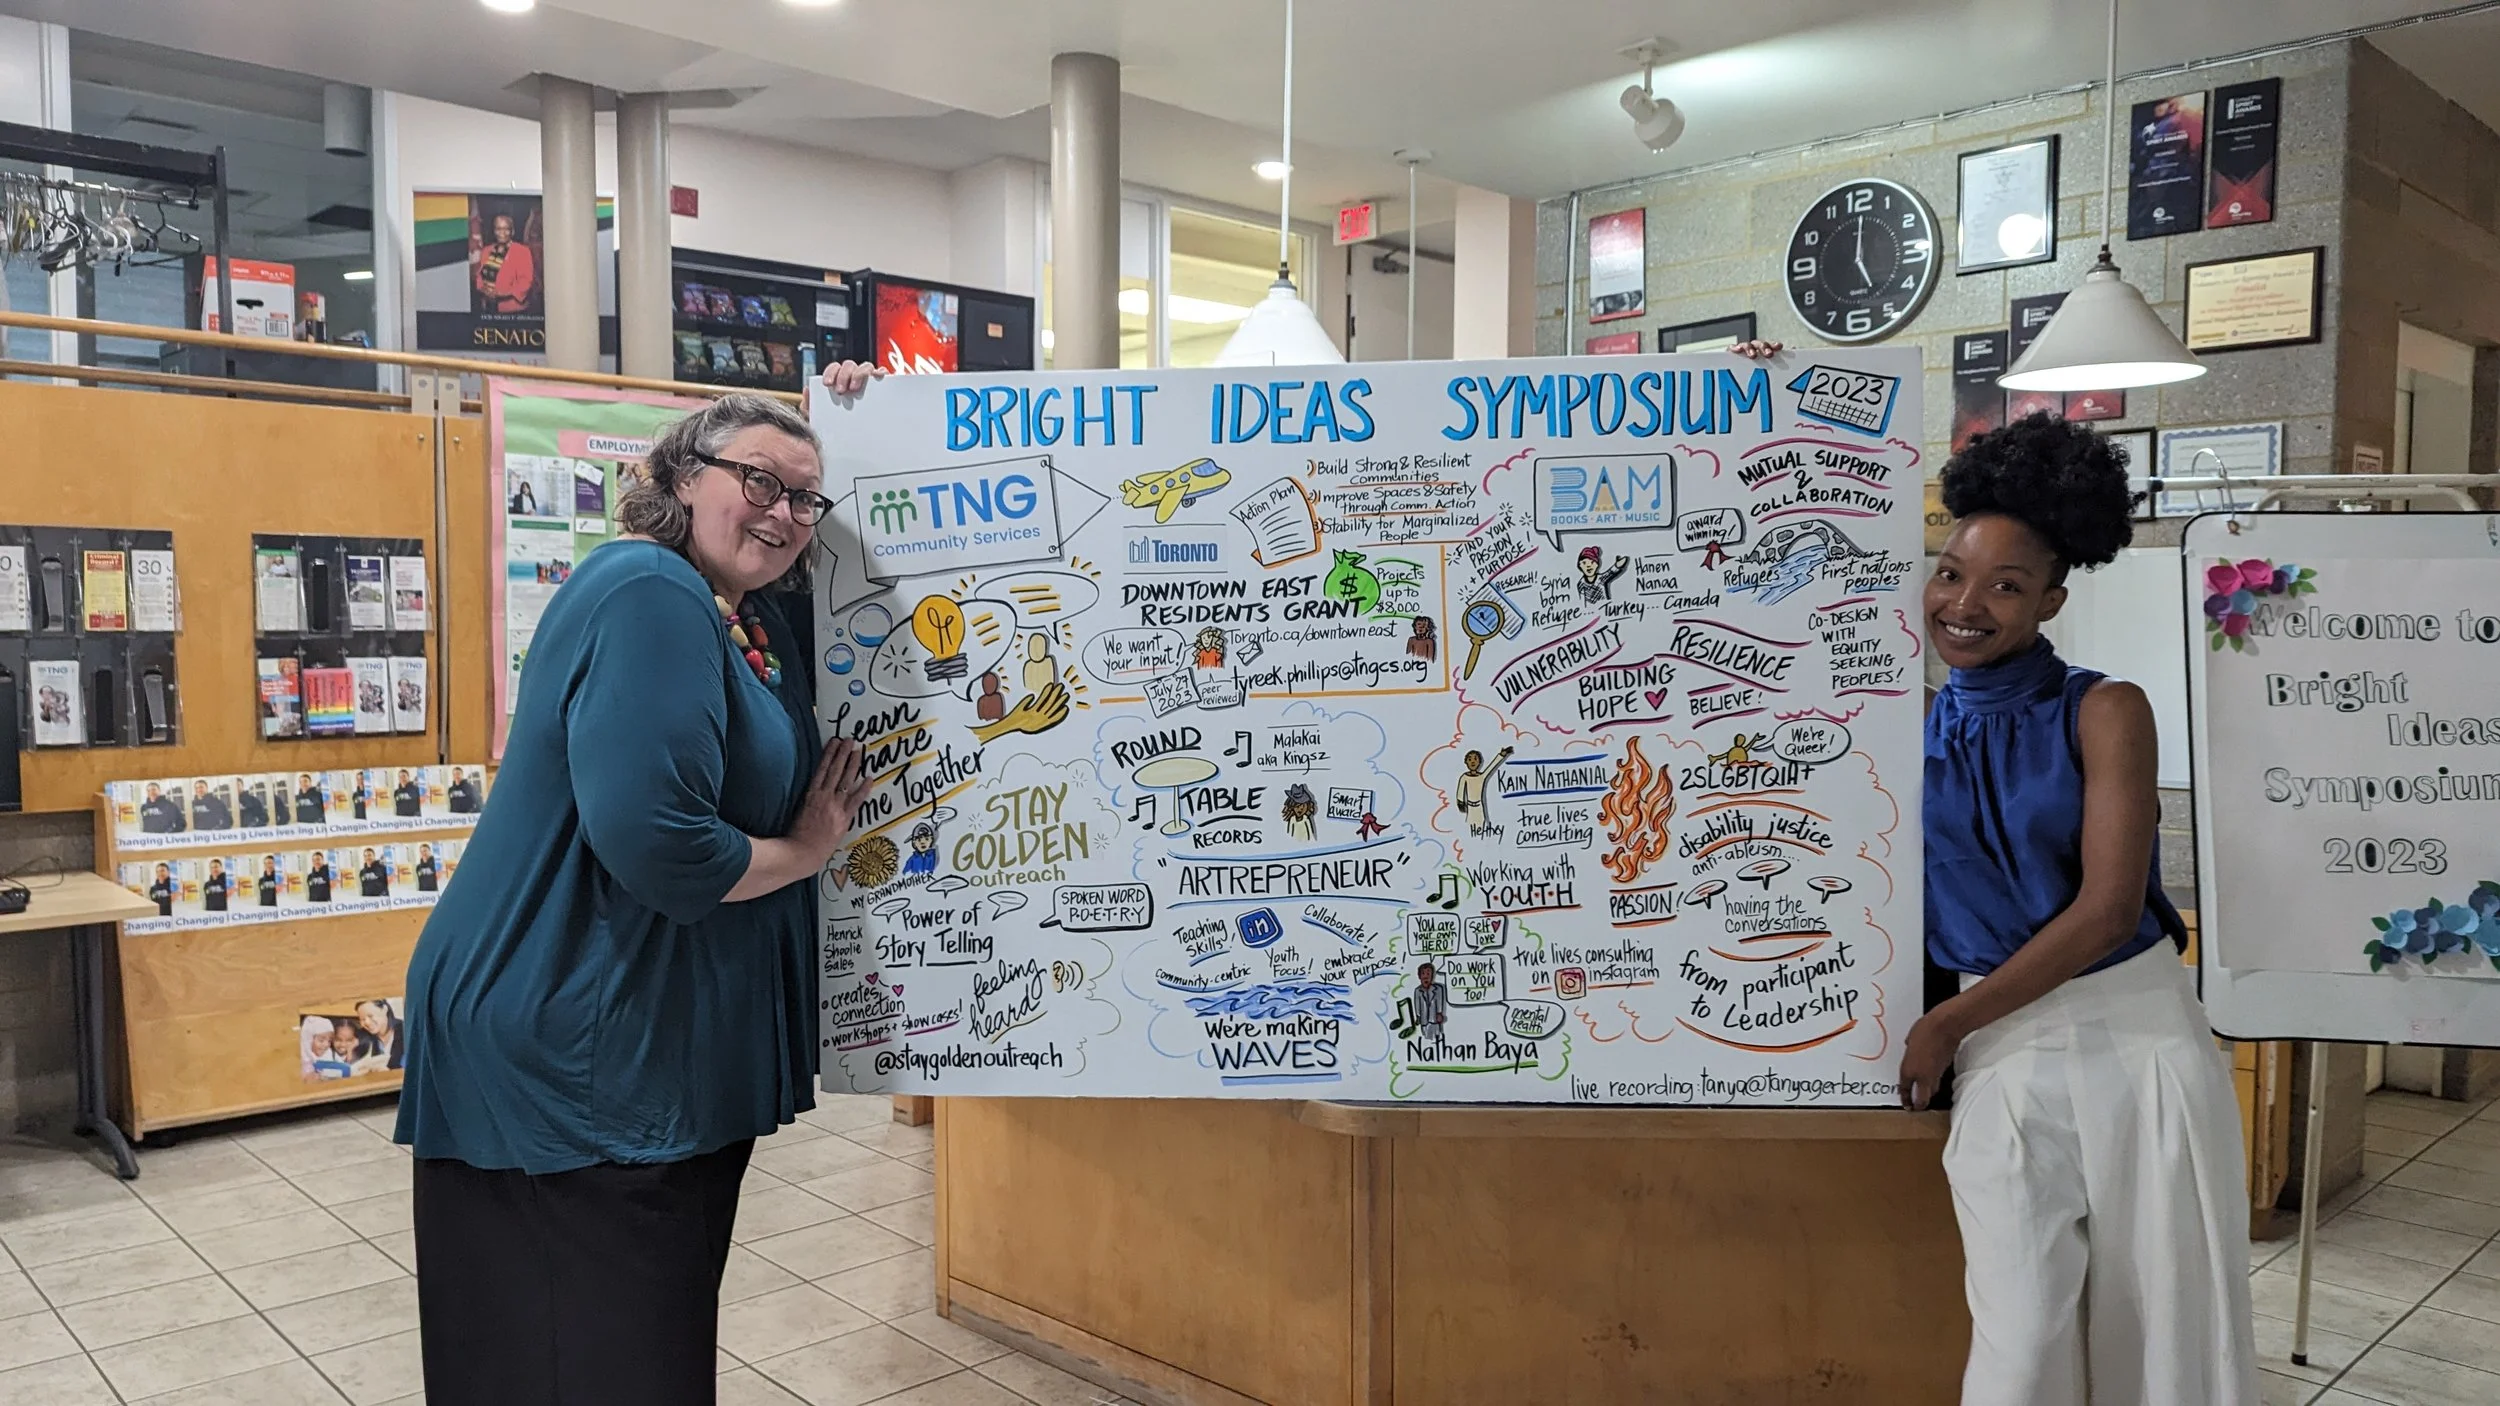 BRIGHT IDEAS SYMPOSIUM
2023
TNG
Community Services
TORONTO
Action Plan
1) Build Strong & Resilient
Communities
2) Improve Spaces & Safety
through Comm. Action
3) Stability for Marginalized
People
DOWNTOWN EAST
RESIDENTS GRANT
$
Projects
up to
$8,000.
We want
your input!
Toronto.ca/downtowneast
tyreek.phillips@tngcs.org
July 27
2023
peer
reviewed
Learn
hare
me Together
STAY
GOLDEN
outreach
MY GRANDMOTHER
Power of
Story Telling
SPOKEN WORD
P-O-E-T-R-Y
Henrick
Shoolie
Sales
• creates
connection
• workshops + showcases!
feeling
heard
@staygoldenoutreach
ROUND
TABLE
RECORDS
Malakai
aka Kingsz
Smart
award
"ARTREPRENEUR"
Teaching
skills!
in
Collaborate!
community-centric
Youth
Focus!
embrace
your purpose!
We're making
WAVES
BAM
BOOKS·ART·MUSIC
FIND YOUR
PASSION
+ PURPOSE!
RESEARCH!
Syria
born
Refugee... Turkey... Canada
Hanen
Nanaa
award
winning!
MUTUAL SUPPORT
&
COLLABORATION
Refugees
First nations
peoples
VULNERABILITY
RESILIENCE
BUILDING
HOPE
BELIEVE!
CO-DESIGN
WITH
EQUITY
SEEKING
PEOPLES!
KAIN NATHANIAL
He/they
true lives
consulting
2SLGBTQIA+
We're
Queer!
disability justice
anti-ableism....
Working with
Y·O·U·T·H
PASSION!
having the
conversations
You are
your own
HERO!
Self
love
Do Work
on You
too!
mental
health
Nathan Baya
true lives consulting
on instagram
from participant
to Leadership
live recording: tanya@tanyagerber.com
Welcome to
Bright
Ideas
Symposium
2023
SENATO
EMPLOYM
EXIT
12
1
2
3
4
5
6
7
8
9
10
11
QUARTZ
30
TNG
TNG
TNG
Changing Lives
Finalist
SPIRIT
AWARDS